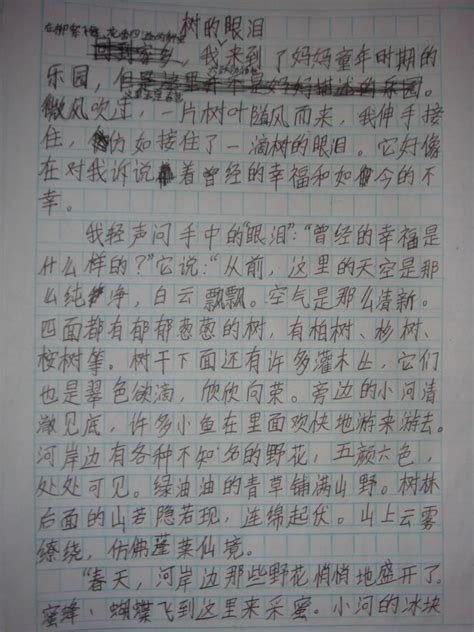 树的眼泪
我来到了妈妈童年时期的
乐园，但是这里并不是妈妈描述的乐园。
微风吹过，一片树叶随风而来，我伸手接
住，仿如接住了一滴树的眼泪。它好像
在对我诉说着曾经的幸福和如今的不
幸。
我轻声问手中的“眼泪”：“曾经的幸福是
什么样的？”它说：“从前，这里的天空是那
么纯净，白云飘飘。空气是那么清新。
四面都有郁郁葱葱的树，有柏树、杉树、
桉树等。树干下面还有许多灌木丛，它们
也是翠色欲滴，欣欣向荣。旁边的小河清
澈见底，许多小鱼在里面欢快地游来游去。
河岸边有各种不知名的野花，五颜六色，
处处可见。绿油油的青草铺满山野。树林
后面的山若隐若现，连绵起伏。山上云雾
缭绕，仿佛蓬莱仙境。
“春天，河岸边那些野花悄悄地盛开了。
蜜蜂、蝴蝶飞到这里来采蜜。小河的冰块